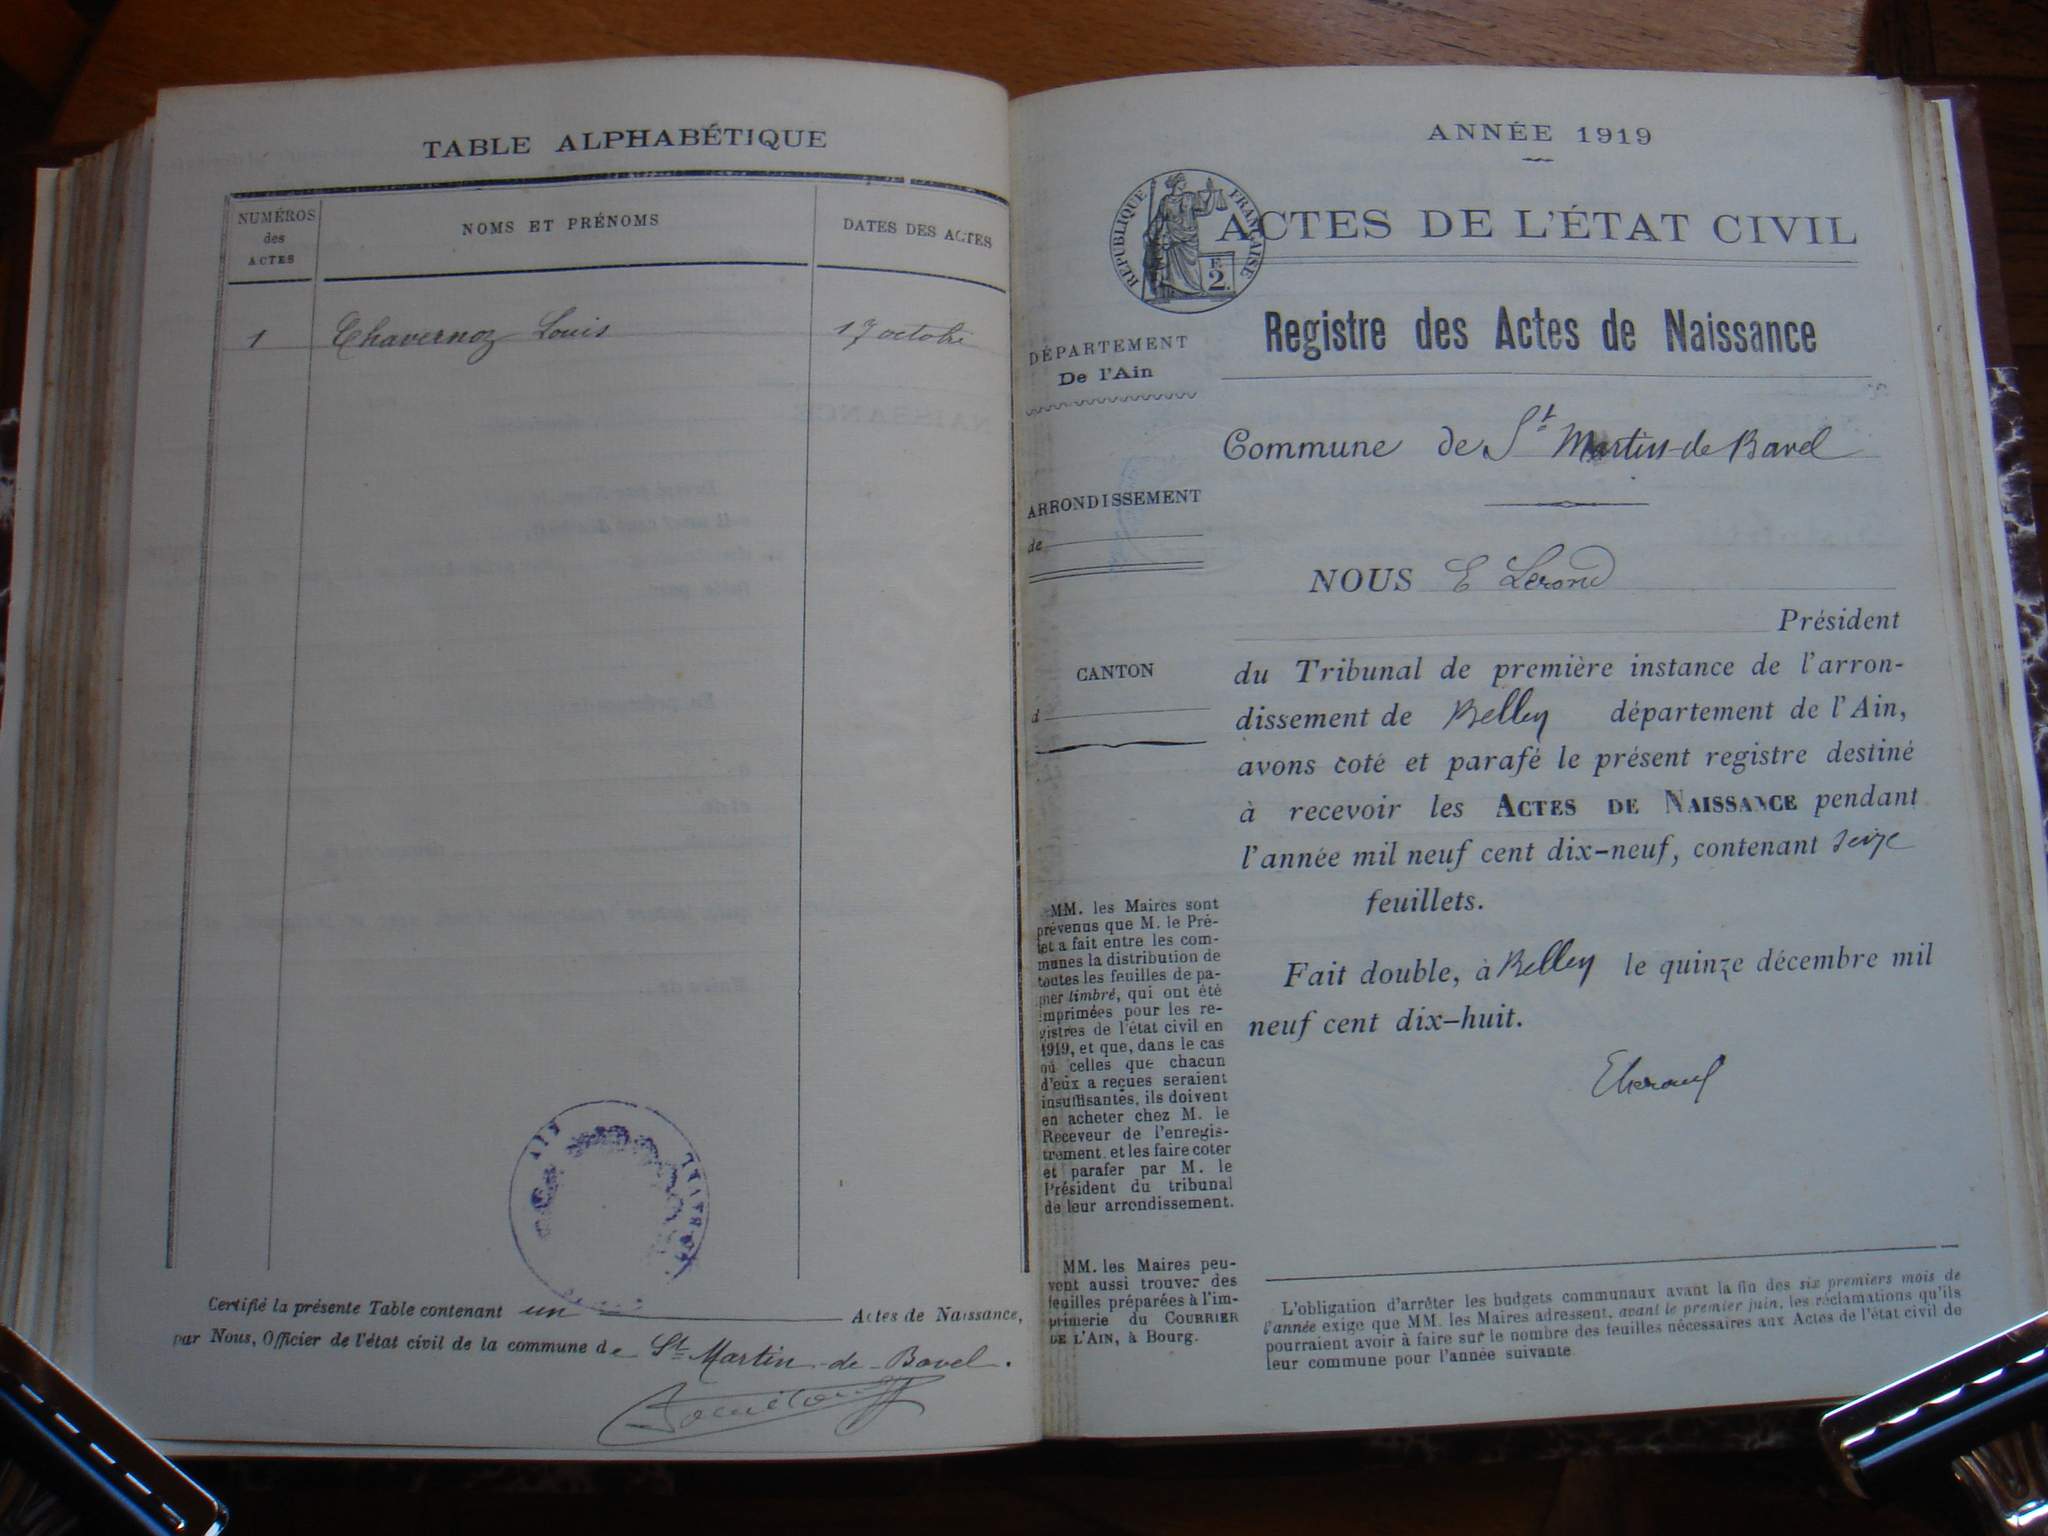 TABLE ALPHABÉTIQUE
NUMÉROS
des
ACTES
NOMS ET PRÉNOMS
DATES DES ACTES
1 Chavernoz Louis 17 octobre
Certifié la présente Table contenant un Actes de Naissance,
par Nous, Officier de l'état civil de la commune de St Martin-de-Bavel.
ANNÉE 1919
RÉPUBLIQUE FRANÇAISE
2
ACTES DE L'ÉTAT CIVIL
Registre des Actes de Naissance
DÉPARTEMENT
De l'Ain
Commune de St Martin-de Bavel
ARRONDISSEMENT
de
NOUS E
Président
CANTON
d
du Tribunal de première instance de l'arron-
dissement de Belley département de l'Ain,
avons coté et parafé le présent registre destiné
à recevoir les ACTES DE NAISSANCE pendant
l'année mil neuf cent dix-neuf, contenant seize
feuillets.
Fait double, à Belley le quinze décembre mil
neuf cent dix-huit.
MM. les Maires sont
prévenus que M. le Pré-
fet a fait entre les com-
munes la distribution de
toutes les feuilles de pa-
pier timbré, qui ont été
imprimées pour les re-
gistres de l'état civil en
1919, et que, dans le cas
où celles que chacun
d'eux a reçues seraient
insuffisantes, ils doivent
en acheter chez M. le
Receveur de l'enregis-
trement. et les faire coter
et parafer par M. le
Président du tribunal
de leur arrondissement.
MM. les Maires peu-
vent aussi trouver des
feuilles préparées à l'im-
primerie du COURRIER
DE L'AIN, à Bourg.
L'obligation d'arrêter les budgets communaux avant la fin des six premiers mois de
l'année exige que MM. les Maires adressent, avant le premier juin, les réclamations qu'ils
pourraient avoir à faire sur le nombre des feuilles nécessaires aux Actes de l'état civil de
leur commune pour l'année suivante